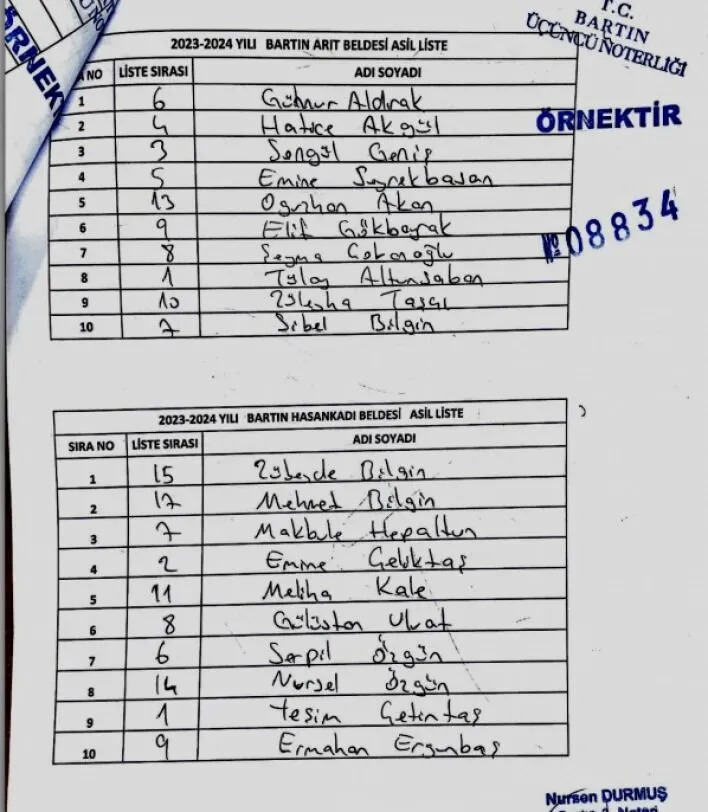 T.C.
BARTIN
ÜÇÜNCÜ NOTERLİĞİ
ÖRNEK
ÖRNEKTİR
№ 08834
2023-2024 YILI BARTIN ARIT BELDESİ ASİL LİSTE
A NO LİSTE SIRASI ADI SOYADI
1 6 Aldırak
2 4 Hatice Akgül
3 3 Songül Geniş
4 5 Emine Seyrekbasan
5 13 Oğuzhan Akan
6 9 Elif Gökbayrak
7 8 Şeyma Çobanoğlu
8 1 Tülay Altunsaban
9 10 Züleyha Taşçı
10 7 Sibel Bilgin
2023-2024 YILI BARTIN HASANKADI BELDESİ ASİL LİSTE
SIRA NO LİSTE SIRASI ADI SOYADI
1 15 Zübeyde Bilgin
2 17 Mehmet Bilgin
3 7 Makbule Hepaltun
4 2 Emine Çeliktaş
5 11 Meliha Kale
6 8 Gülüstan
7 6 Serpil Özgün
8 14 Nursel Özgün
9 1 Çetintaş
10 9
Nursen DURMUŞ